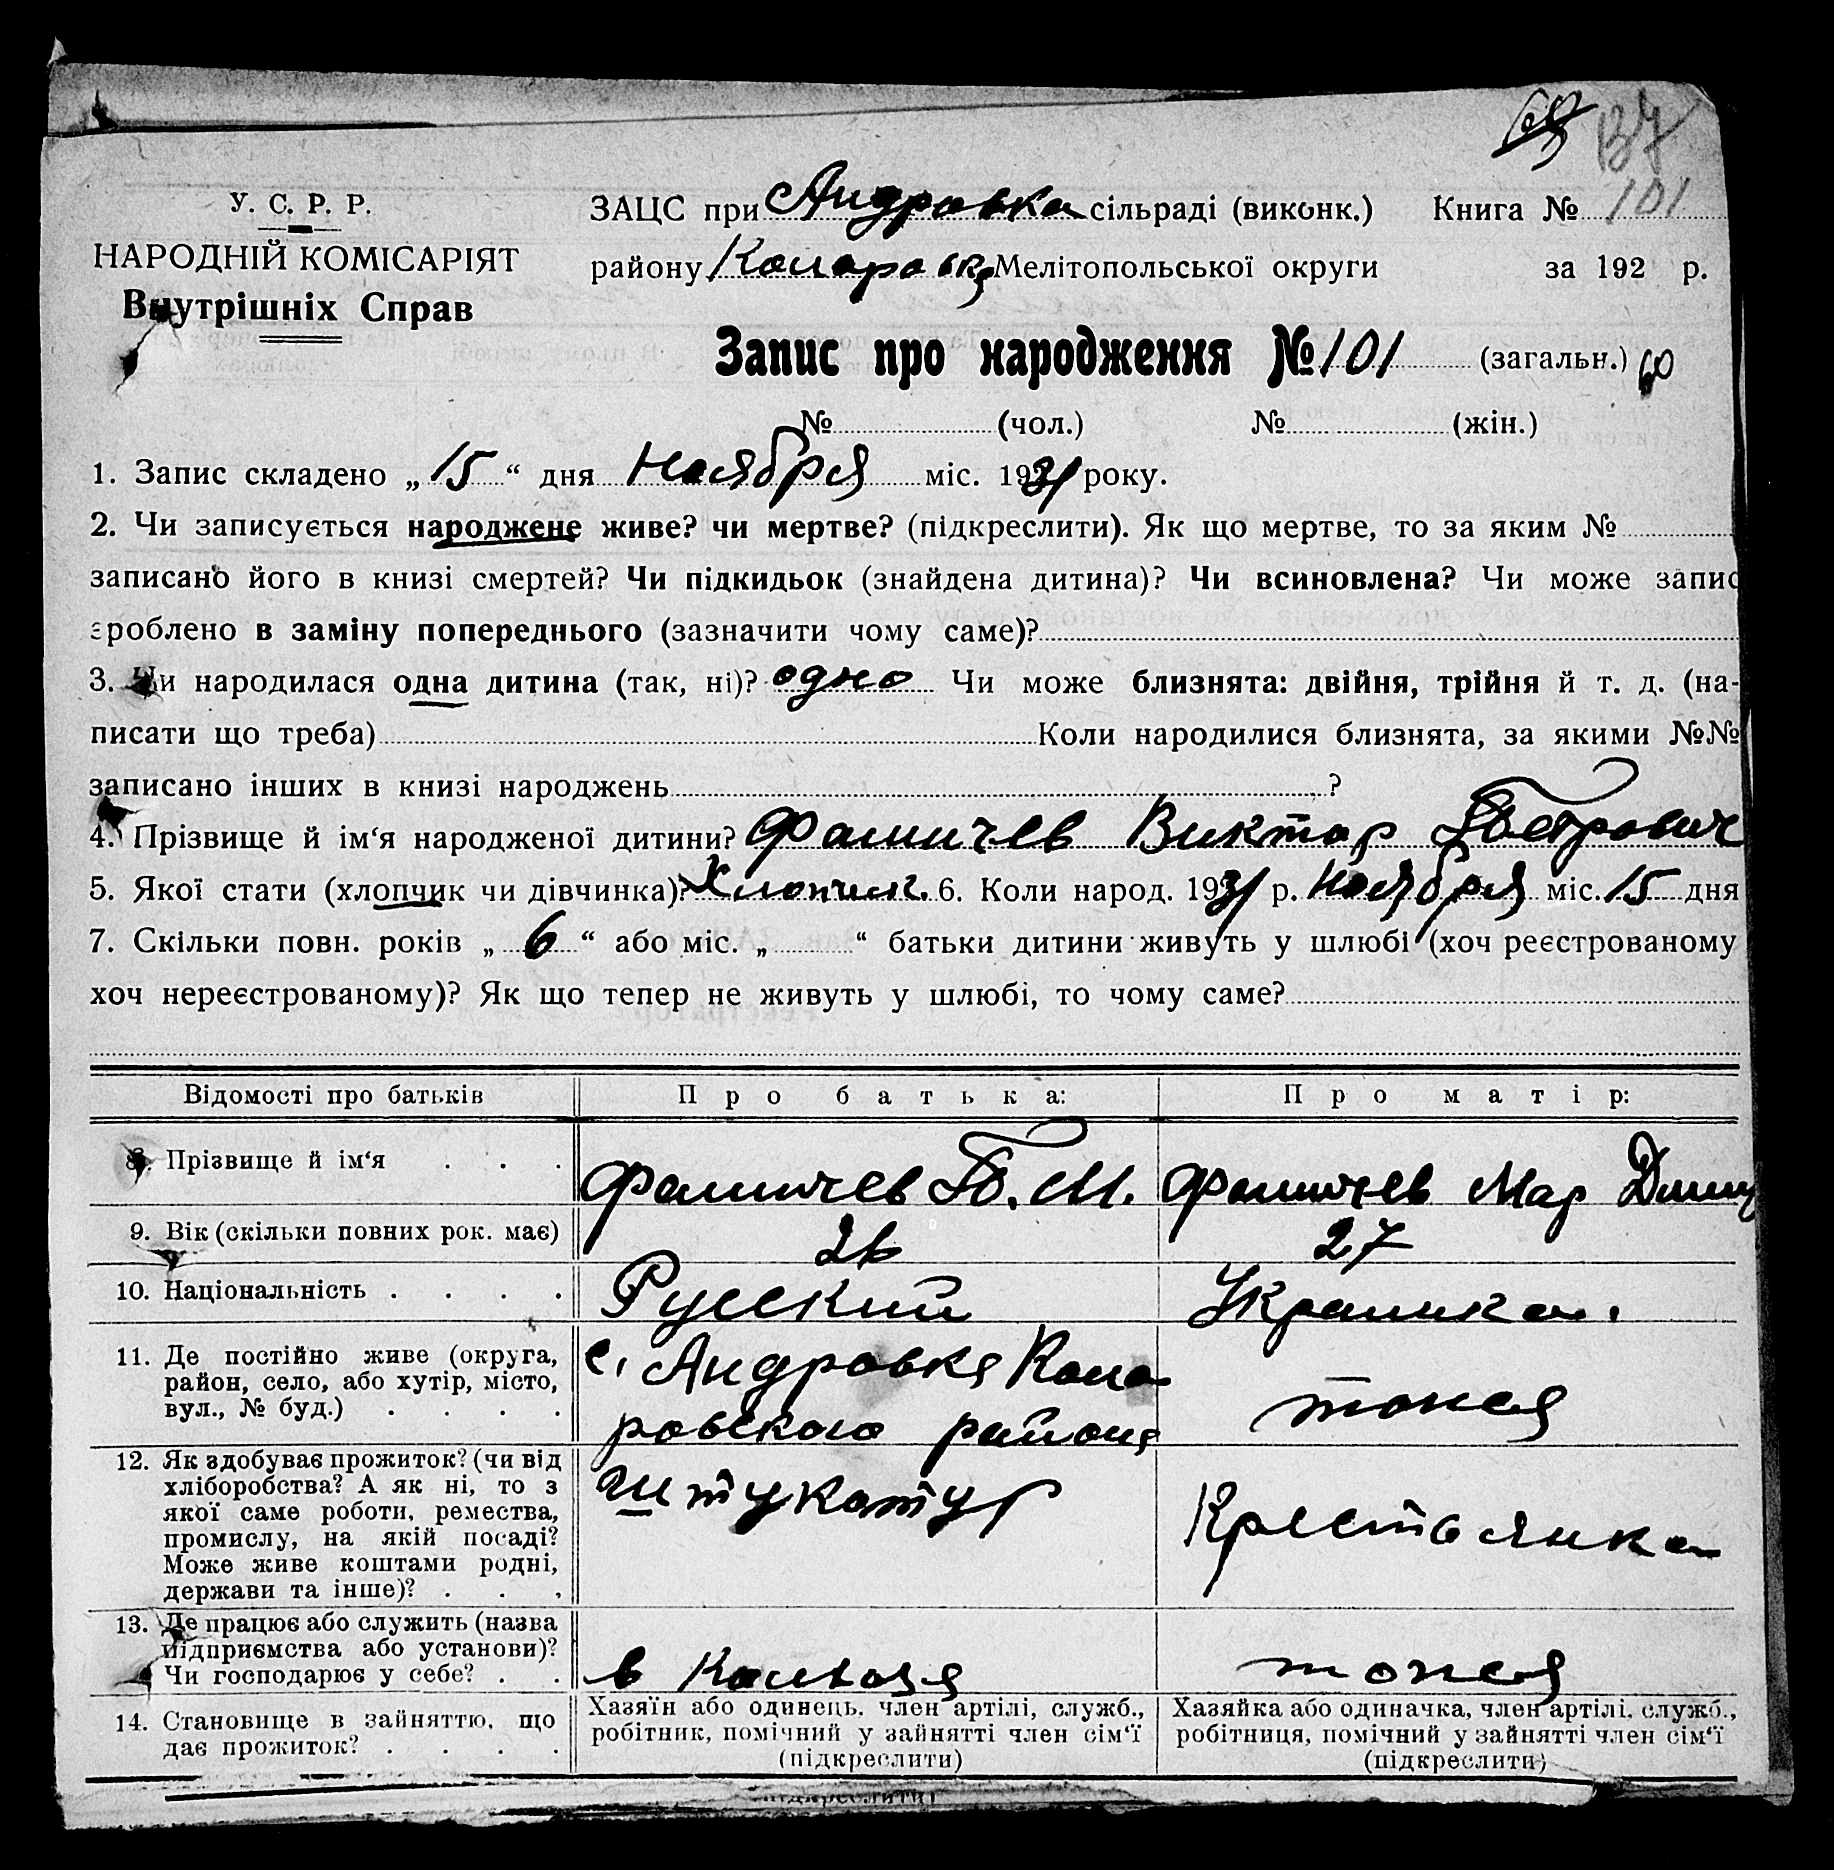 137
У. С. Р. Р.
НАРОДНІЙ КОМІСАРІЯТ
Внутрішніх Справ
ЗАЦС при Андровка сільраді (виконк.) Книга № 101
району Коларовка Мелітопольської округи за 192 р.
Запис про народження № 101 (загальн.) 60
№ (чол.) № (жін.)
1. Запис складено „ 15 “ дня Ноября міс. 1931 року.
2. Чи записується народжене живе? чи мертве? (підкреслити). Як що мертве, то за яким №
записано його в книзі смертей? Чи підкидьок (знайдена дитина)? Чи всиновлена? Чи може запис
зроблено в заміну попереднього (зазначити чому саме)?
3. Чи народилася одна дитина (так, ні)? одно Чи може близнята: двійня, трійня й т. д. (на-
писати що треба) Коли народилися близнята, за якими №№
записано інших в книзі народжень ?
4. Прізвище й ім‘я народженої дитини? Фамичев Виктор Петрович
5. Якої стати (хлопчик чи дівчинка)? Хлопчик. 6. Коли народ. 1931 р. Ноября міс. 15 дня
7. Скільки повн. років „ 6 “ або міс. „ “ батьки дитини живуть у шлюбі (хоч реєстрованому
хоч нереєстрованому)? Як що тепер не живуть у шлюбі, то чому саме?
Відомості про батьків Про батька: Про матір:
8. Прізвище й ім‘я . . . Фамичев П. М. Фамичев Мар
9. Вік (скільки повних рок. має) 26 27
10. Національність . . . . Русский Украинка.
11. Де постійно живе (округа,
район, село, або хутір, місто,
вул., № буд.) . . . .
с. Андровка Кола
ровского района
тоже
12. Як здобуває прожиток? (чи від
хліборобства? А як ні, то з
якої саме роботи, ремества,
промислу, на якій посаді?
Може живе коштами родні,
держави та інше)? . . .
штукатур
Крестьянка
13. Де працює або служить (назва
підприємства або установи)?
Чи господарює у себе? . .
в колхозе
тоже
14. Становище в зайняттю, що
дає прожиток? . . . .
Хазяїн або одинець, член артілі, служб.,
робітник, помічний у зайнятті член сім‘ї
(підкреслити)
Хазяйка або одиначка, член артілі, служб.,
робітниця, помічний у зайнятті член сім‘ї
(підкреслити)